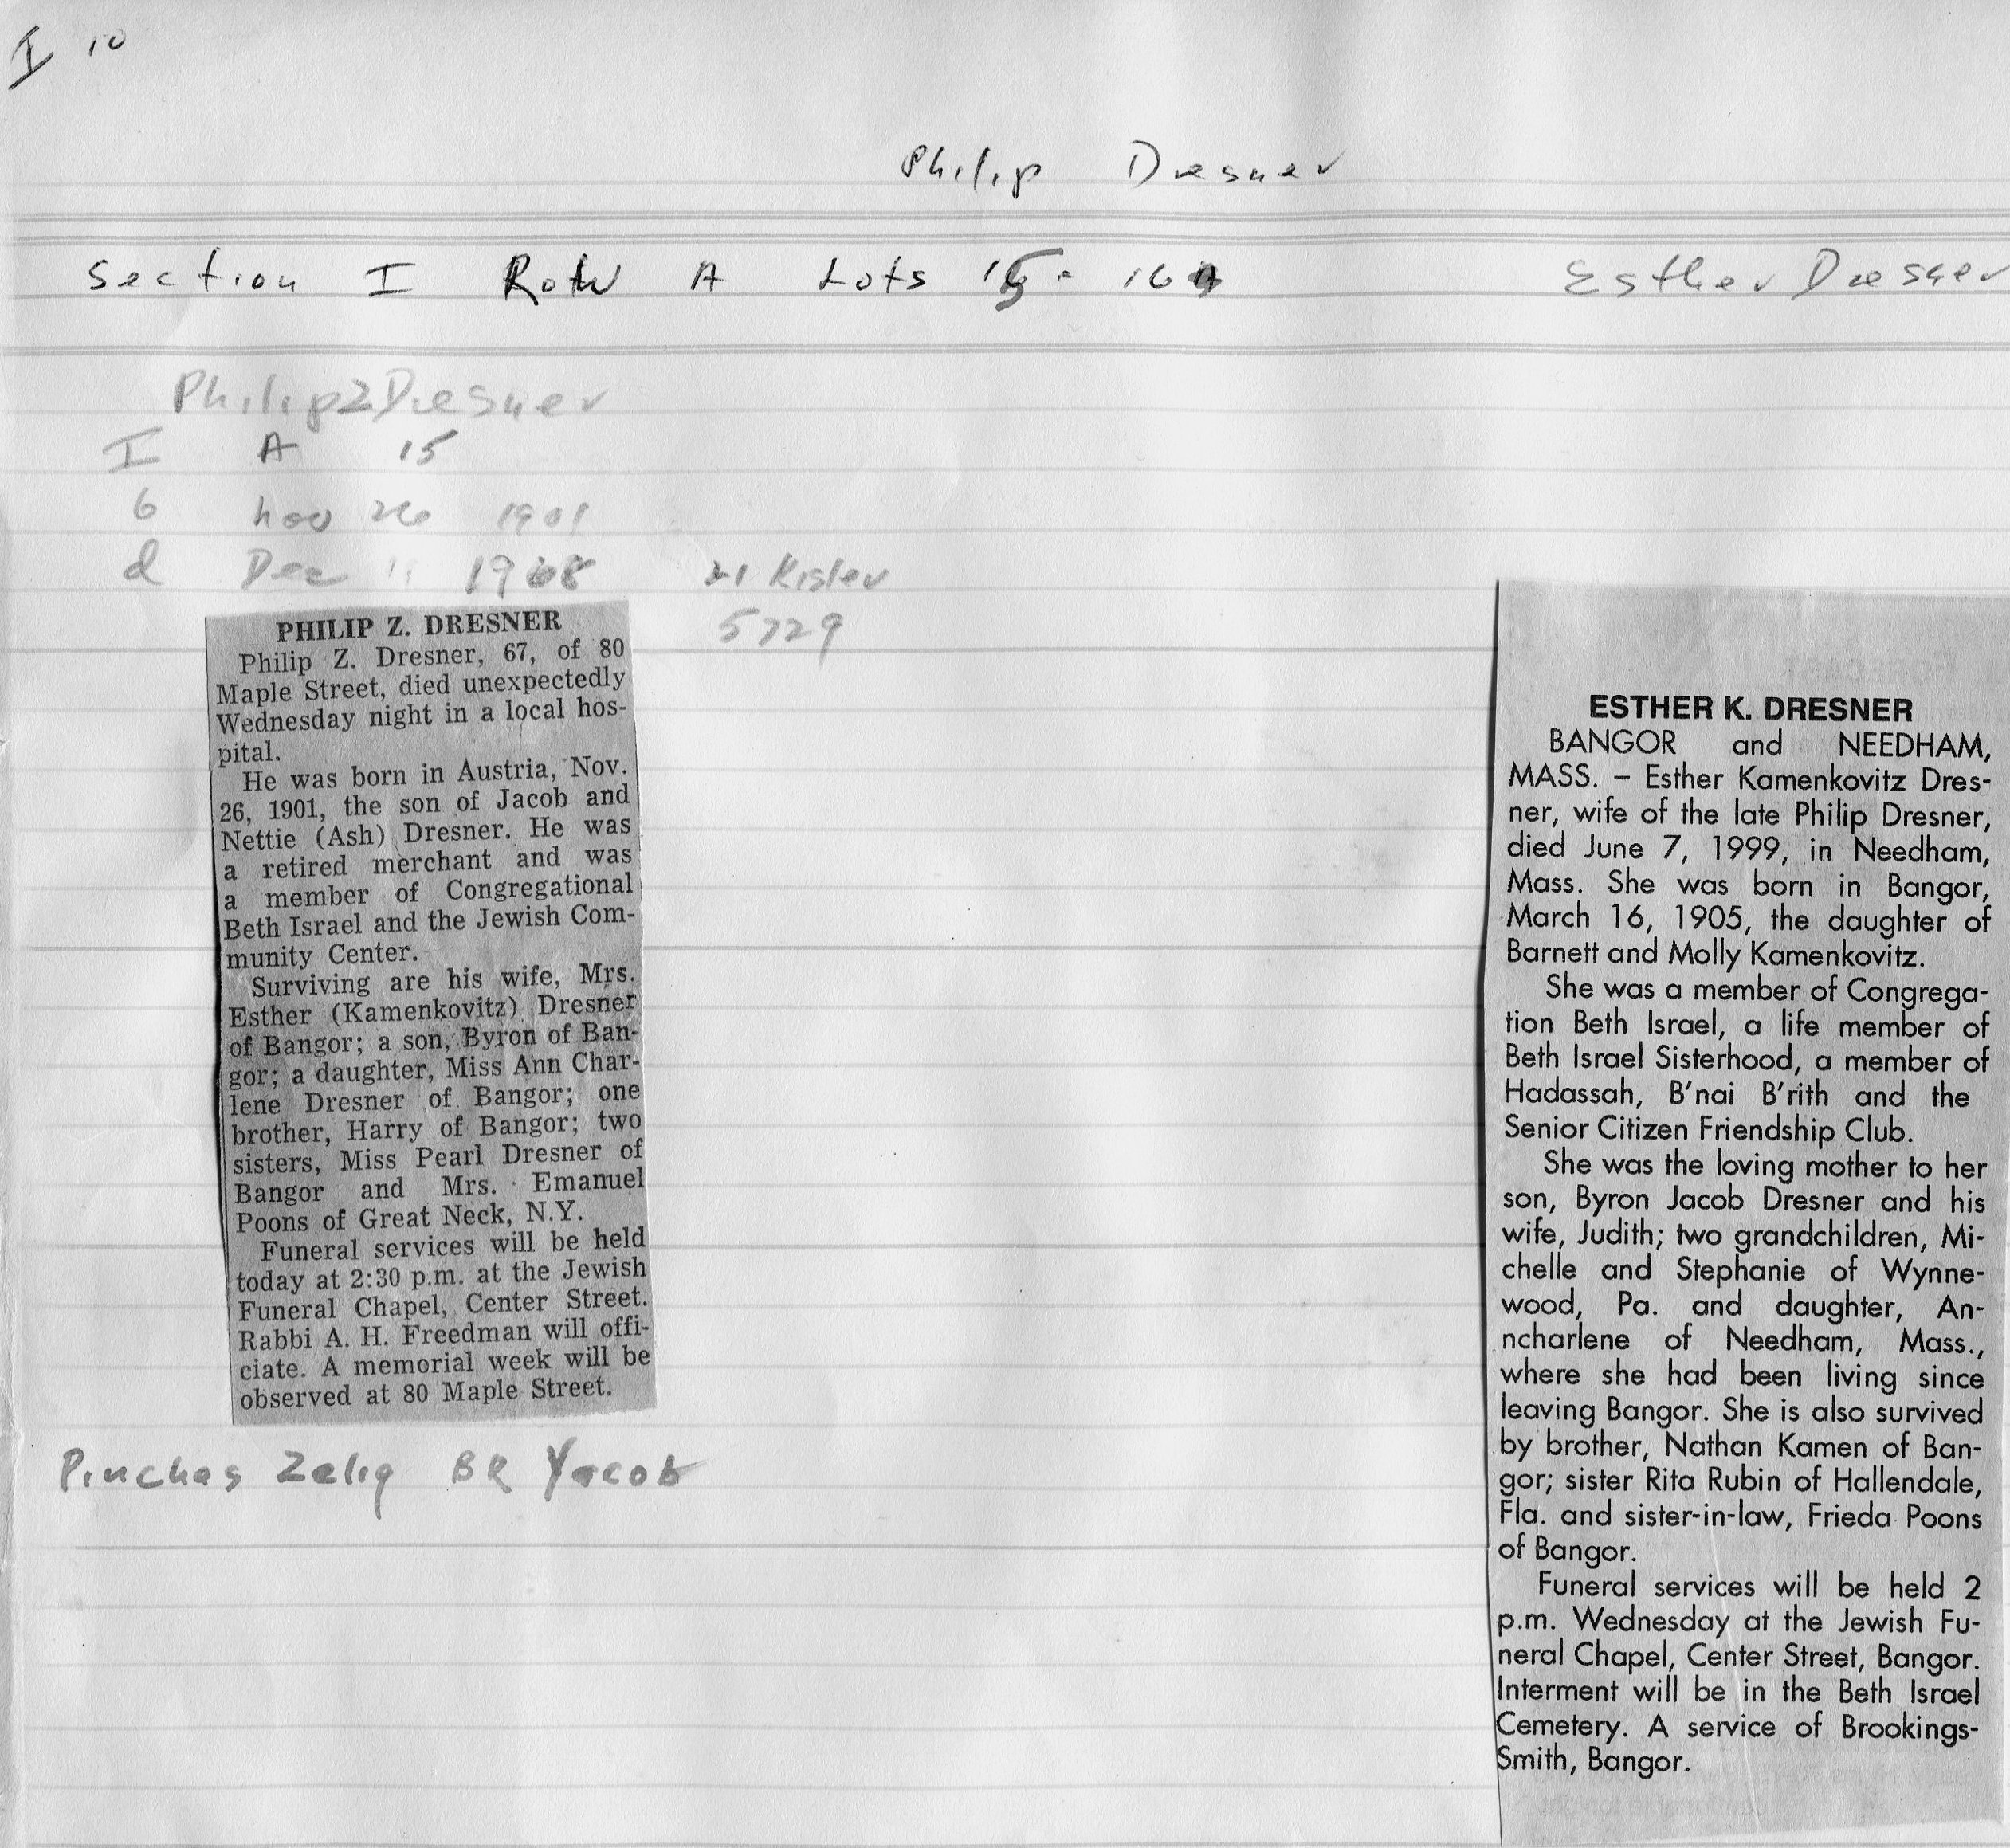 I 10
Philip Dresner
Section I Row A Lots 15 - 16
Esther Dresner
Philip Z Dresner
I A 15
b Nov 26 1901
d Dec 11 1968 21 Kislev
5729
PHILIP Z. DRESNER
Philip Z. Dresner, 67, of 80
Maple Street, died unexpectedly
Wednesday night in a local hos-
pital.
He was born in Austria, Nov.
26, 1901, the son of Jacob and
Nettie (Ash) Dresner. He was
a retired merchant and was
a member of Congregational
Beth Israel and the Jewish Com-
munity Center.
Surviving are his wife, Mrs.
Esther (Kamenkovitz) Dresner
of Bangor; a son, Byron of Ban-
gor; a daughter, Miss Ann Char-
lene Dresner of Bangor; one
brother, Harry of Bangor; two
sisters, Miss Pearl Dresner of
Bangor and Mrs. Emanuel
Poons of Great Neck, N.Y.
Funeral services will be held
today at 2:30 p.m. at the Jewish
Funeral Chapel, Center Street.
Rabbi A. H. Freedman will offi-
ciate. A memorial week will be
observed at 80 Maple Street.
Pinchas Zelig BR Yacob
ESTHER K. DRESNER
BANGOR and NEEDHAM,
MASS. – Esther Kamenkovitz Dres-
ner, wife of the late Philip Dresner,
died June 7, 1999, in Needham,
Mass. She was born in Bangor,
March 16, 1905, the daughter of
Barnett and Molly Kamenkovitz.
She was a member of Congrega-
tion Beth Israel, a life member of
Beth Israel Sisterhood, a member of
Hadassah, B'nai B'rith and the
Senior Citizen Friendship Club.
She was the loving mother to her
son, Byron Jacob Dresner and his
wife, Judith; two grandchildren, Mi-
chelle and Stephanie of Wynne-
wood, Pa. and daughter, An-
ncharlene of Needham, Mass.,
where she had been living since
leaving Bangor. She is also survived
by brother, Nathan Kamen of Ban-
gor; sister Rita Rubin of Hallendale,
Fla. and sister-in-law, Frieda Poons
of Bangor.
Funeral services will be held 2
p.m. Wednesday at the Jewish Fu-
neral Chapel, Center Street, Bangor.
Interment will be in the Beth Israel
Cemetery. A service of Brookings-
Smith, Bangor.